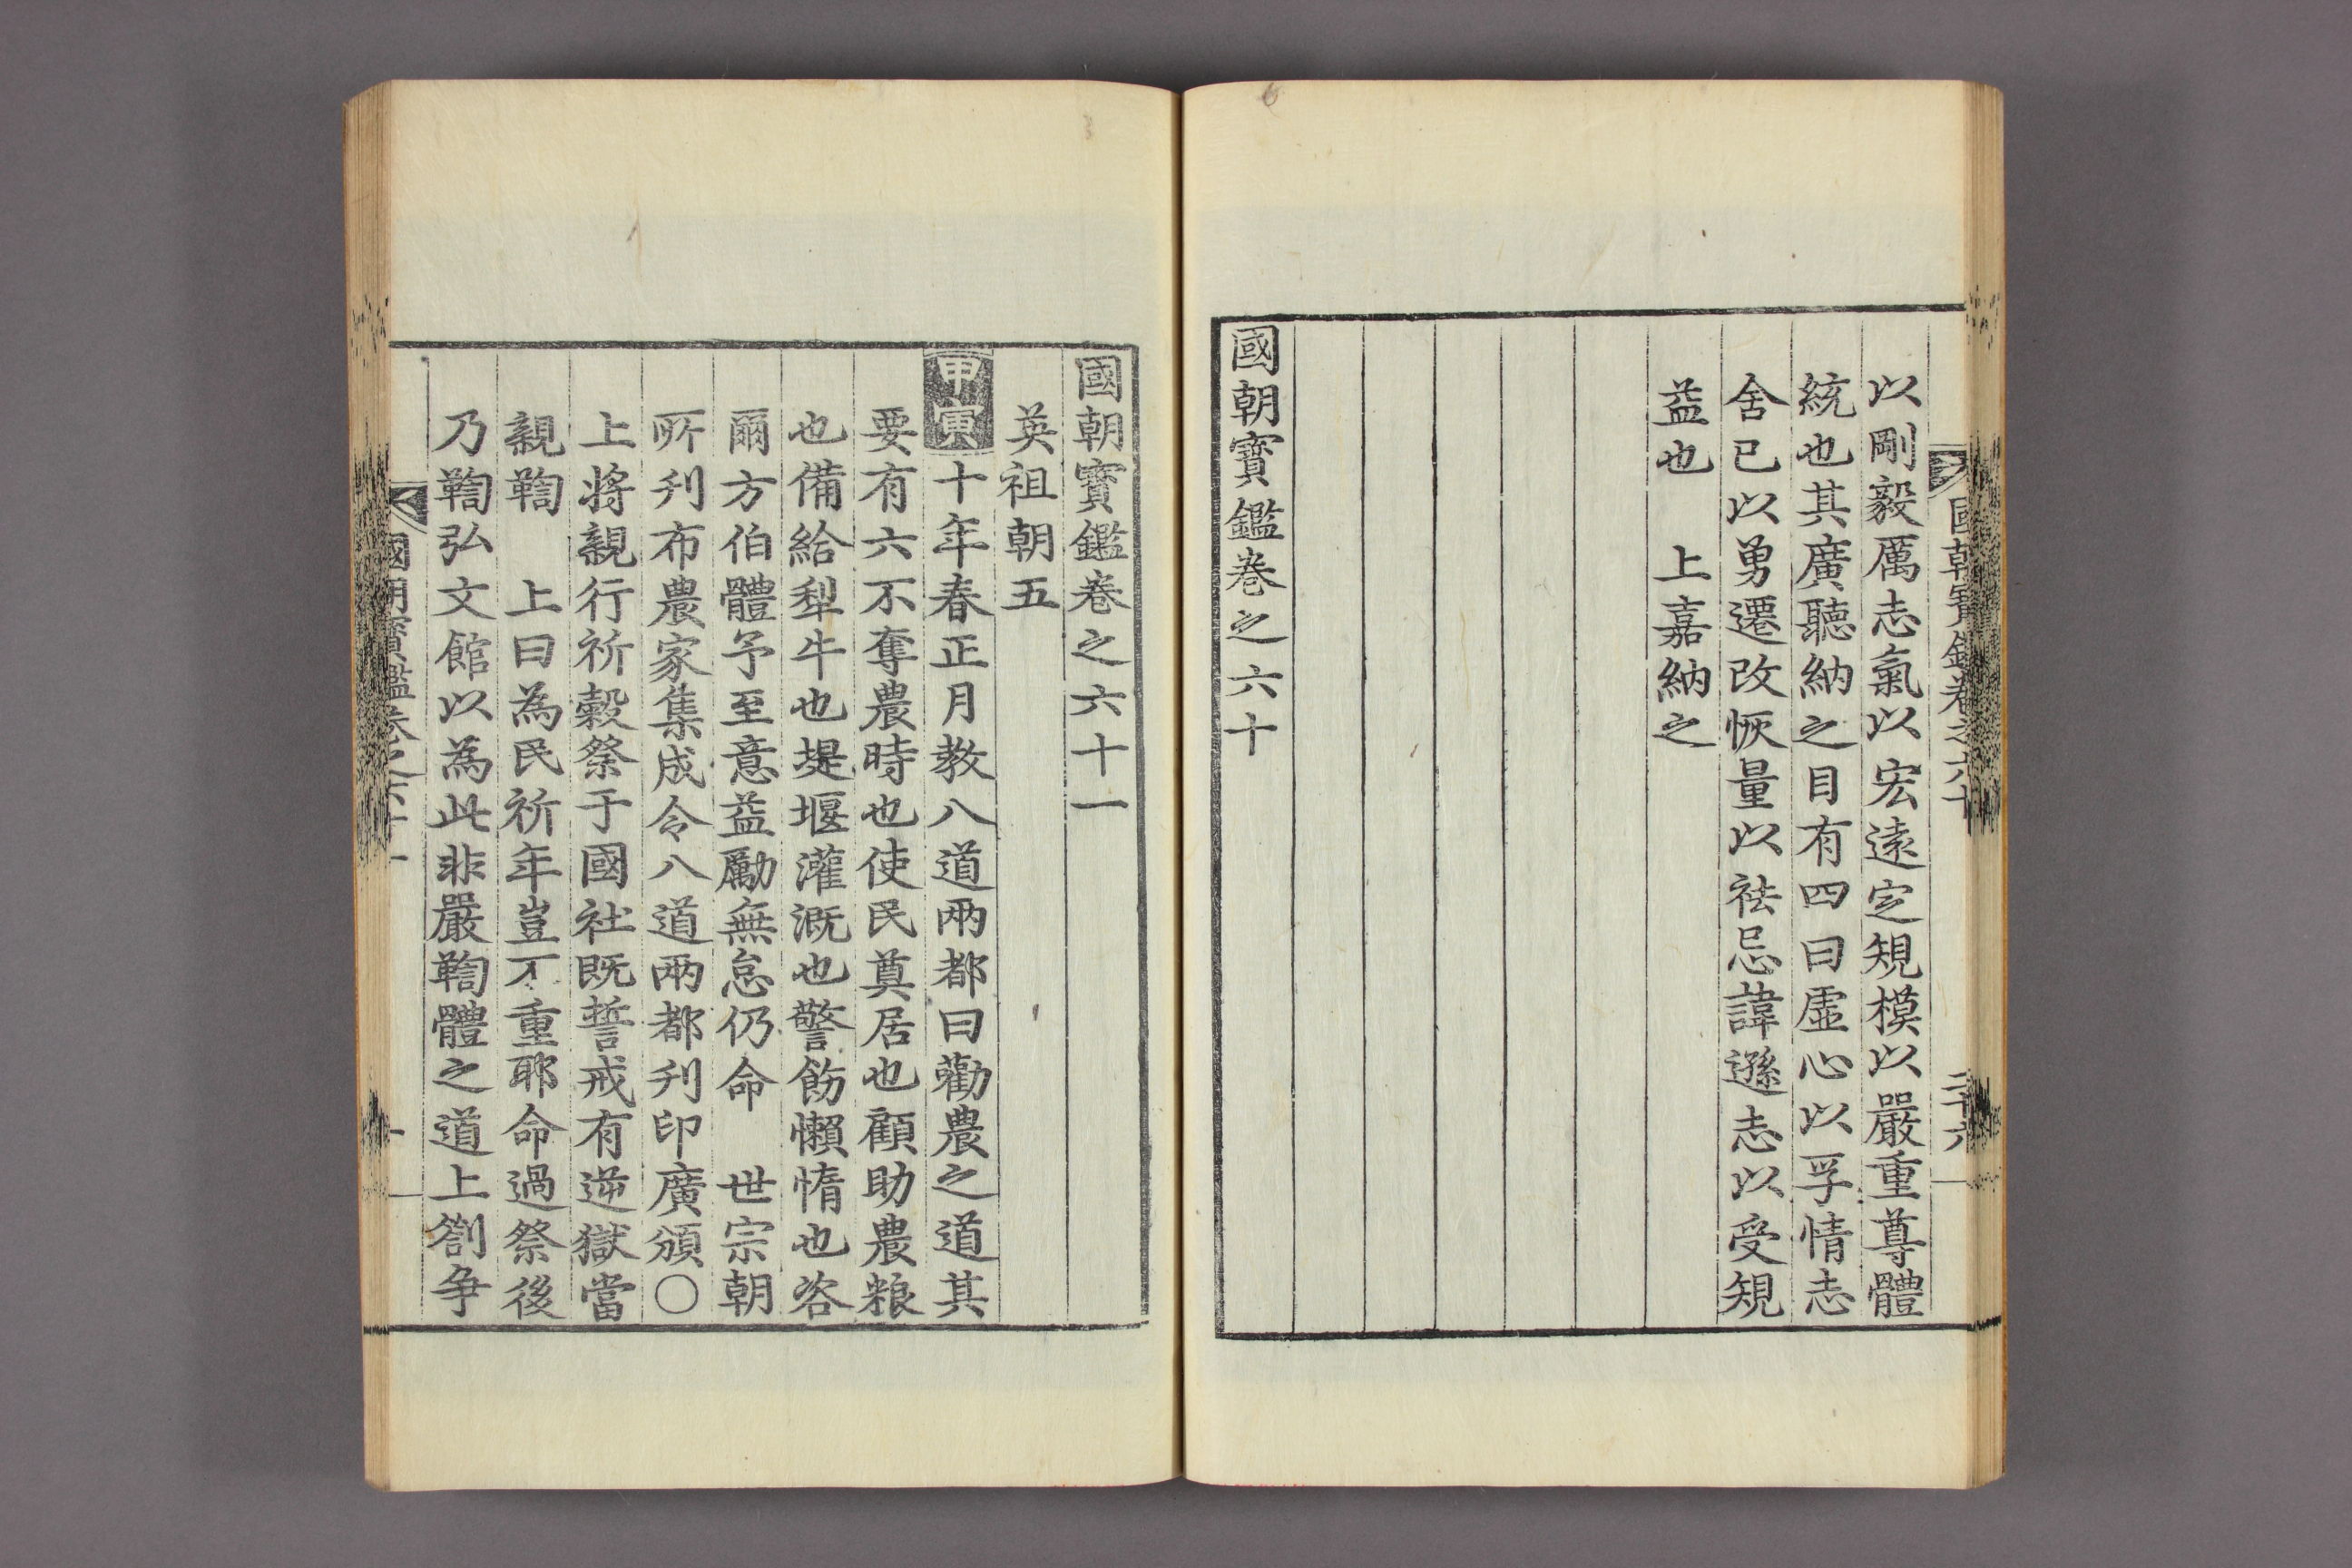 國朝寶鑑卷之六十
二十六
以剛毅厲志氣以宏遠定規模以嚴重尊體
統也其廣聽納之目有四曰虛心以孚情志
舍已以勇遷改恢量以祛忌諱遜志以受規
益也 上嘉納之
國朝寶鑑卷之六十
國朝寶鑑卷之六十一
英祖朝五
甲寅十年春正月教八道兩都曰勸農之道其
要有六不奪農時也使民奠居也顧助農粮
也備給犁牛也堤堰灌漑也警飭懶惰也咨
爾方伯體予至意益勵無怠仍命 世宗朝
所刋布農家集成令八道兩都刋印廣頒○
上將親行祈穀祭于國社既誓戒有逆獄當
親鞫 上曰為民祈年豈不重耶命過祭後
乃鞫弘文館以為此非嚴鞫體之道上劄争
國朝寶鑑卷之六十一
一